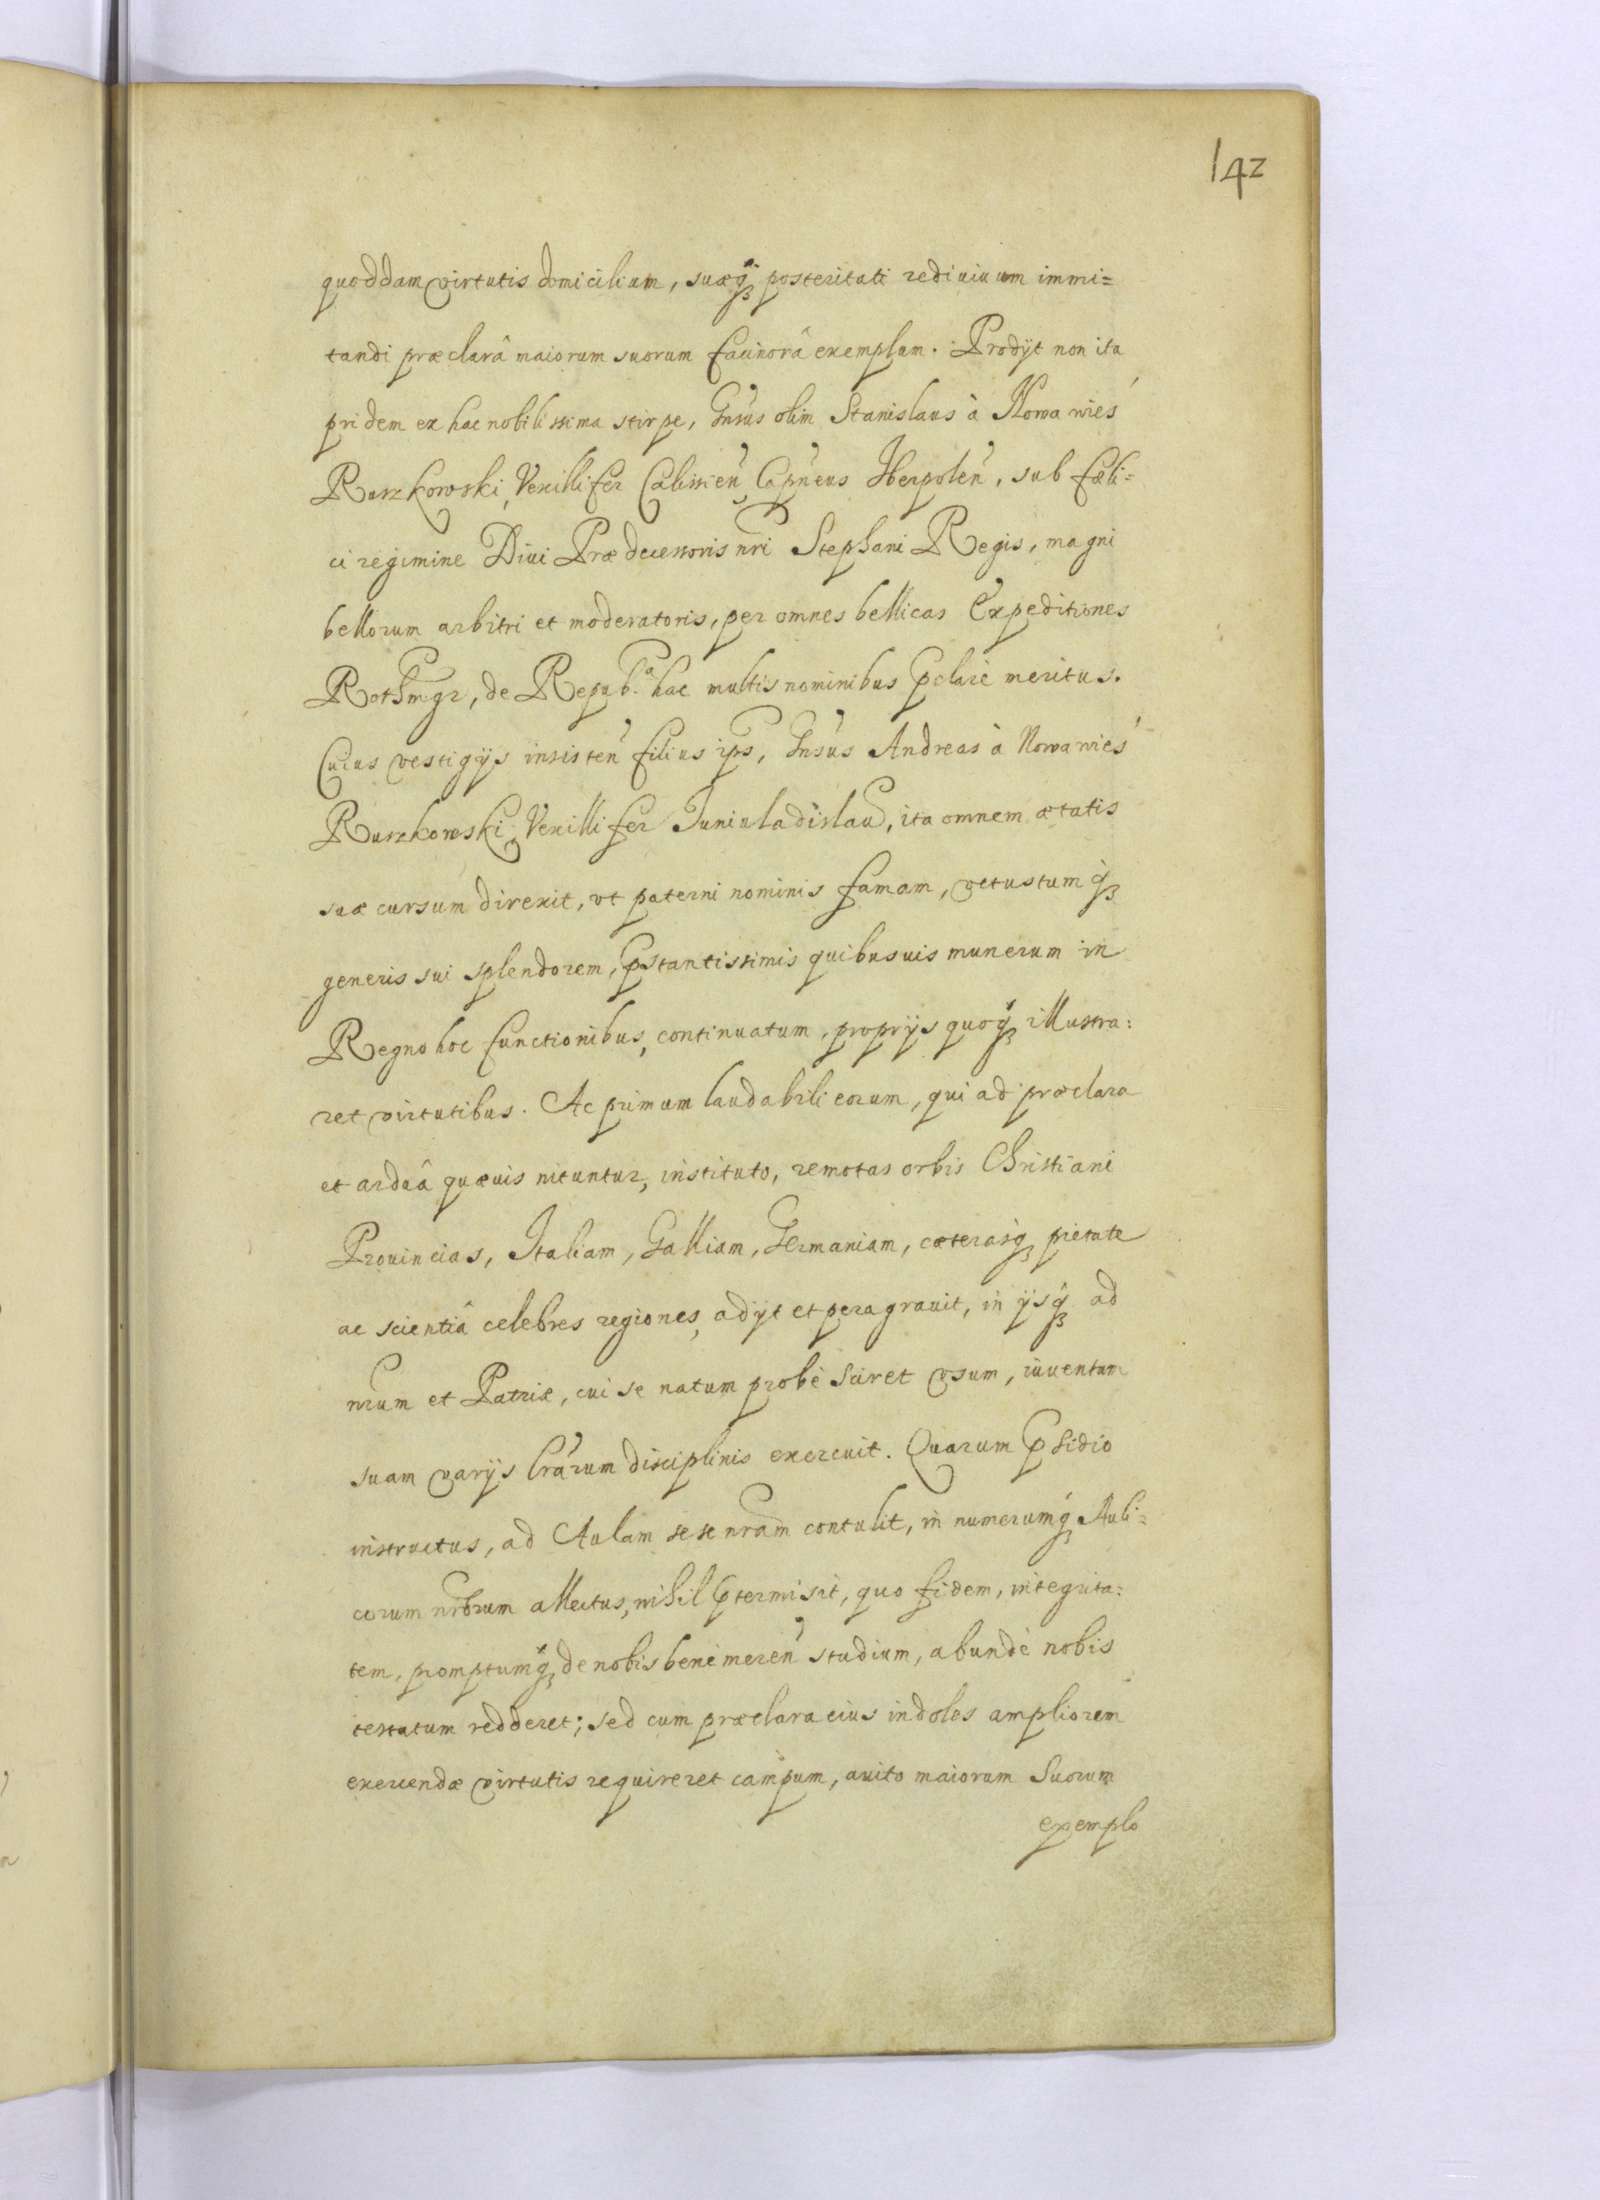 142
quoddam virtutis domicilium, suæq́ꝫ posteritati rediuiuum immi=
tandi præclarâ maiorum suorum facinorâ exemplum. Prodyt non ita
pridem ex hac nobilissima stirpe, Gnsus olim Stanislaus à Nowa wieś
Ruszkowski, Vexillifer Calissien̄, Capneus Iterpolen̄, sub fœli=
ci regimine Diui Prædecessoris nri Stephani Regis, magni
bellorum arbitri et moderatoris, per omnes bellicas Expeditiones
Rothmgr, de Repub.ª hac multis nominibus pclarè meritus.
Cuius vestigÿs insisten̄ filius ips, Gnsus Andreas à Nowa wieś
Ruszkowski, Vexillifer Iuniuladislau, ita omnem ætatis
suæ cursum direxit, vt paterni nominis famam, vetustumq́ꝫ
generis sui splendorem, pstantissimis quibusuis munerum in
Regno hoc functionibus, continuatum, proprÿs quoq́ꝫ illustra:
ret virtutibus. Ac primum laudabili eorum, qui ad præclara
et arduâ quæuis nituntur, instituto, remotas orbis Christiani
Prouincias, Italiam, Galliam, Germaniam, cæterasq́ꝫ pietate
ac scientiâ celebres regiones, adÿt et peragrauit, in ÿsq́ꝫ ad
nrum et Patriæ, cui se natum probè sciret vsum, iuuentam
suam varÿs lrārum disciplinis exercuit. Quarum psidio
instructus, ad Aulam sese nram contulit, in numerumq́ꝫ Auli=
corum nrorum allectus, nihil ptermisit, quo fidem, integrita:
tem, promptumq́ꝫ de nobis benè meren̄ studium, abundè nobis
testatum redderet; sed cum præclara eius indoles ampliorem
exercendæ virtutis requireret campum, auito maiorum suorum
exemplo